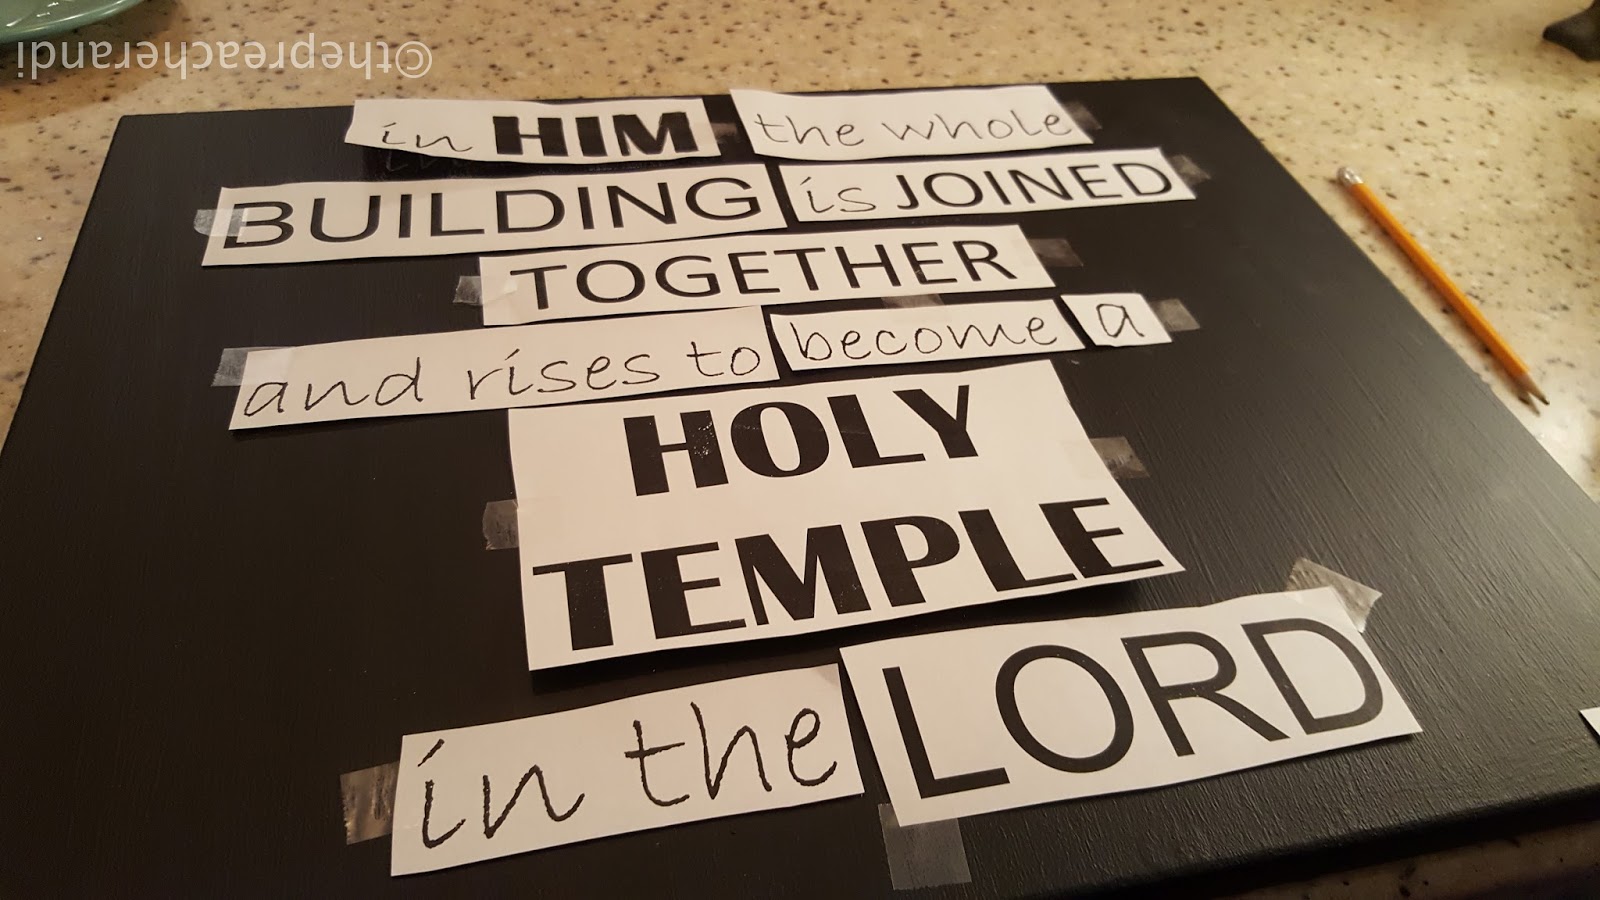 ©thepreacherandi
in HIM the whole
BUILDING is JOINED
TOGETHER
and rises to become a
HOLY
TEMPLE
in the LORD